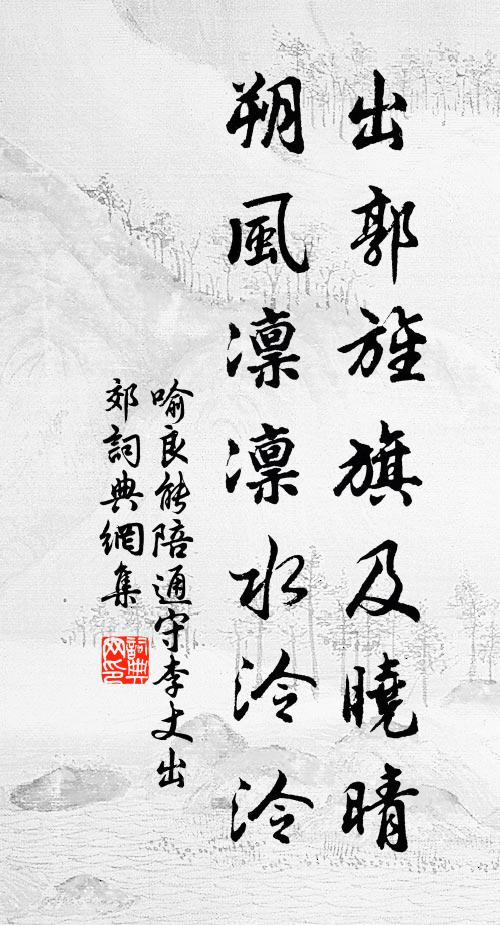 出郭旌旗及曉晴
朔風凛凛水泠泠
喻良能陪通守李丈出
郊詞典網集
詞典网印